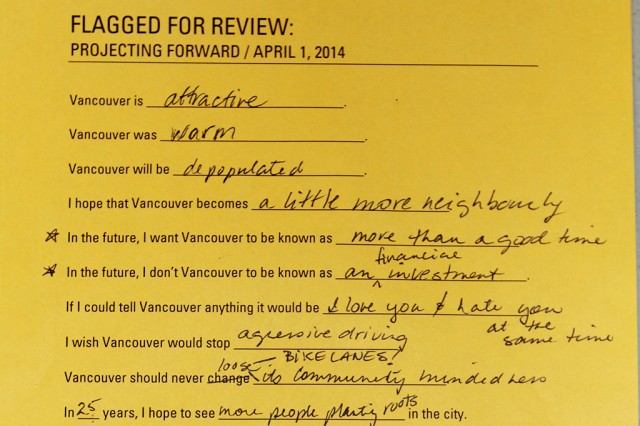 FLAGGED FOR REVIEW:
PROJECTING FORWARD / APRIL 1, 2014
Vancouver is attractive.
Vancouver was warm.
Vancouver will be depopulated.
I hope that Vancouver becomes a little more neighbourly
☆ In the future, I want Vancouver to be known as more than a good time
☆ In the future, I don't Vancouver to be known as an ^ financial investment.
If I could tell Vancouver anything it would be I love you & hate you
at the same time
I wish Vancouver would stop agressive driving
BIKE LANES!
Vancouver should never change loose its community mindedness
In 25 years, I hope to see more people planting roots in the city.